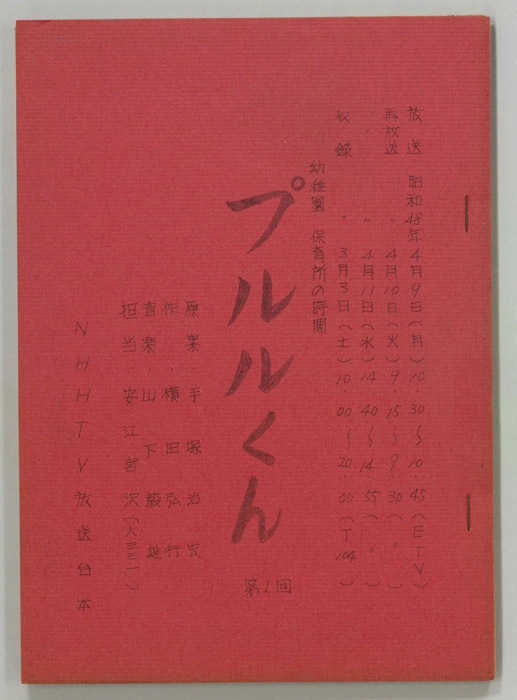 放送 昭和48年4月9日(月)10.30〜10.45(ETV)
再放送 〃 4月10日(火)9.15〜9.30(〃)
〃 〃 4月11日(水)14.40〜14.55(〃)
収録 〃 3月3日(土)10.00〜20.00(T104)
幼稚園 保育所の時間
プルルくん
第1回
原案・手塚治虫
作・横田弘行
音楽・山下毅雄
担当 安江 宮沢(大三三一)
NHHTV放送台本